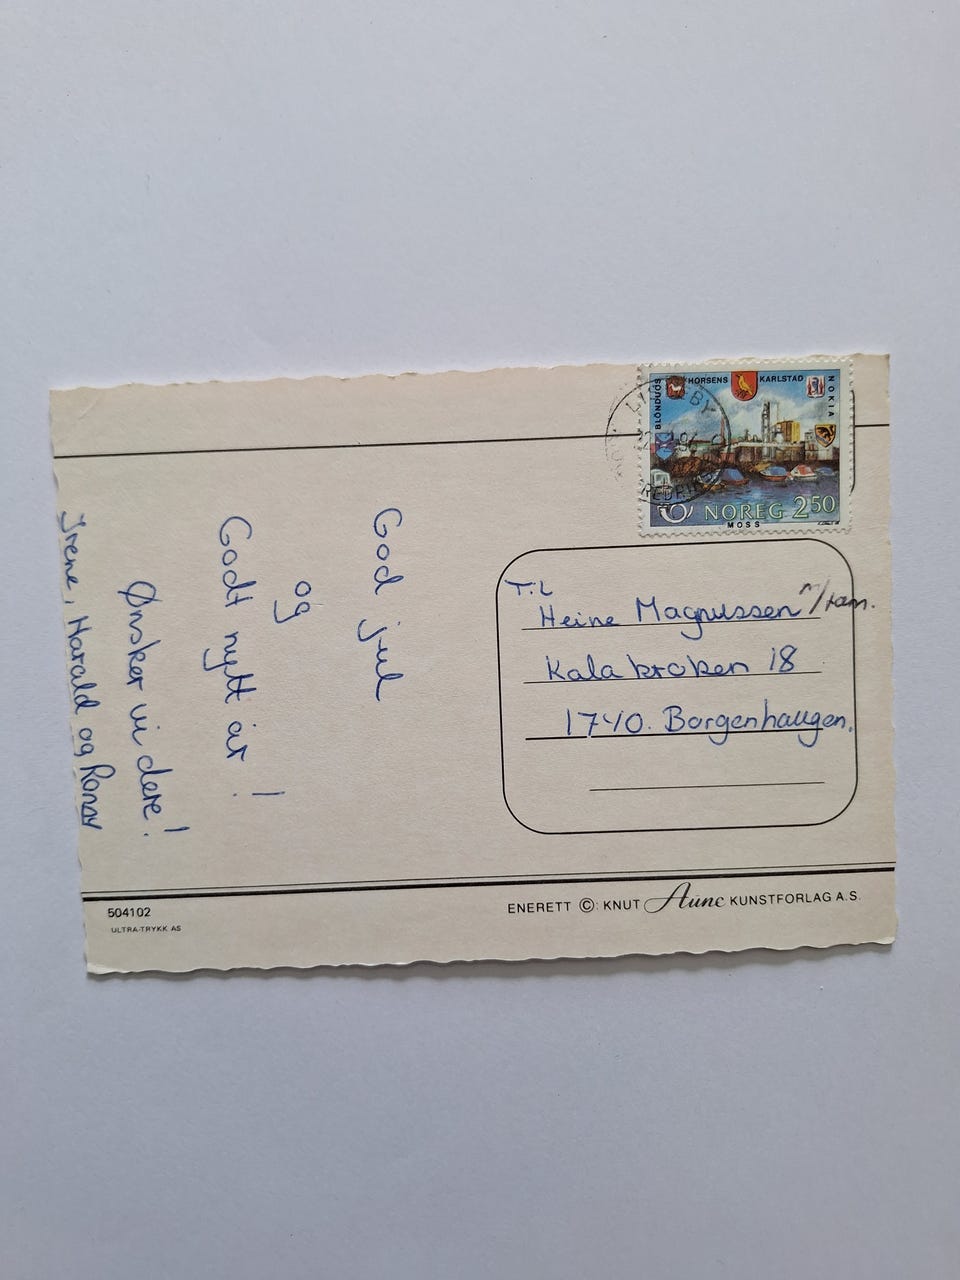 BLÖNDUÓS HORSENS KARLSTAD NOKIA
NOREG 250
MOSS
God jul
og
Godt nytt år!
Ønsker vi dere!
Irene, Harald og
Til
Heine Magnussen m/fam.
Kalakroken 18
1740. Borgenhaugen.
504102
ULTRA-TRYKK AS
ENERETT ©: KNUT Aune KUNSTFORLAG A.S.